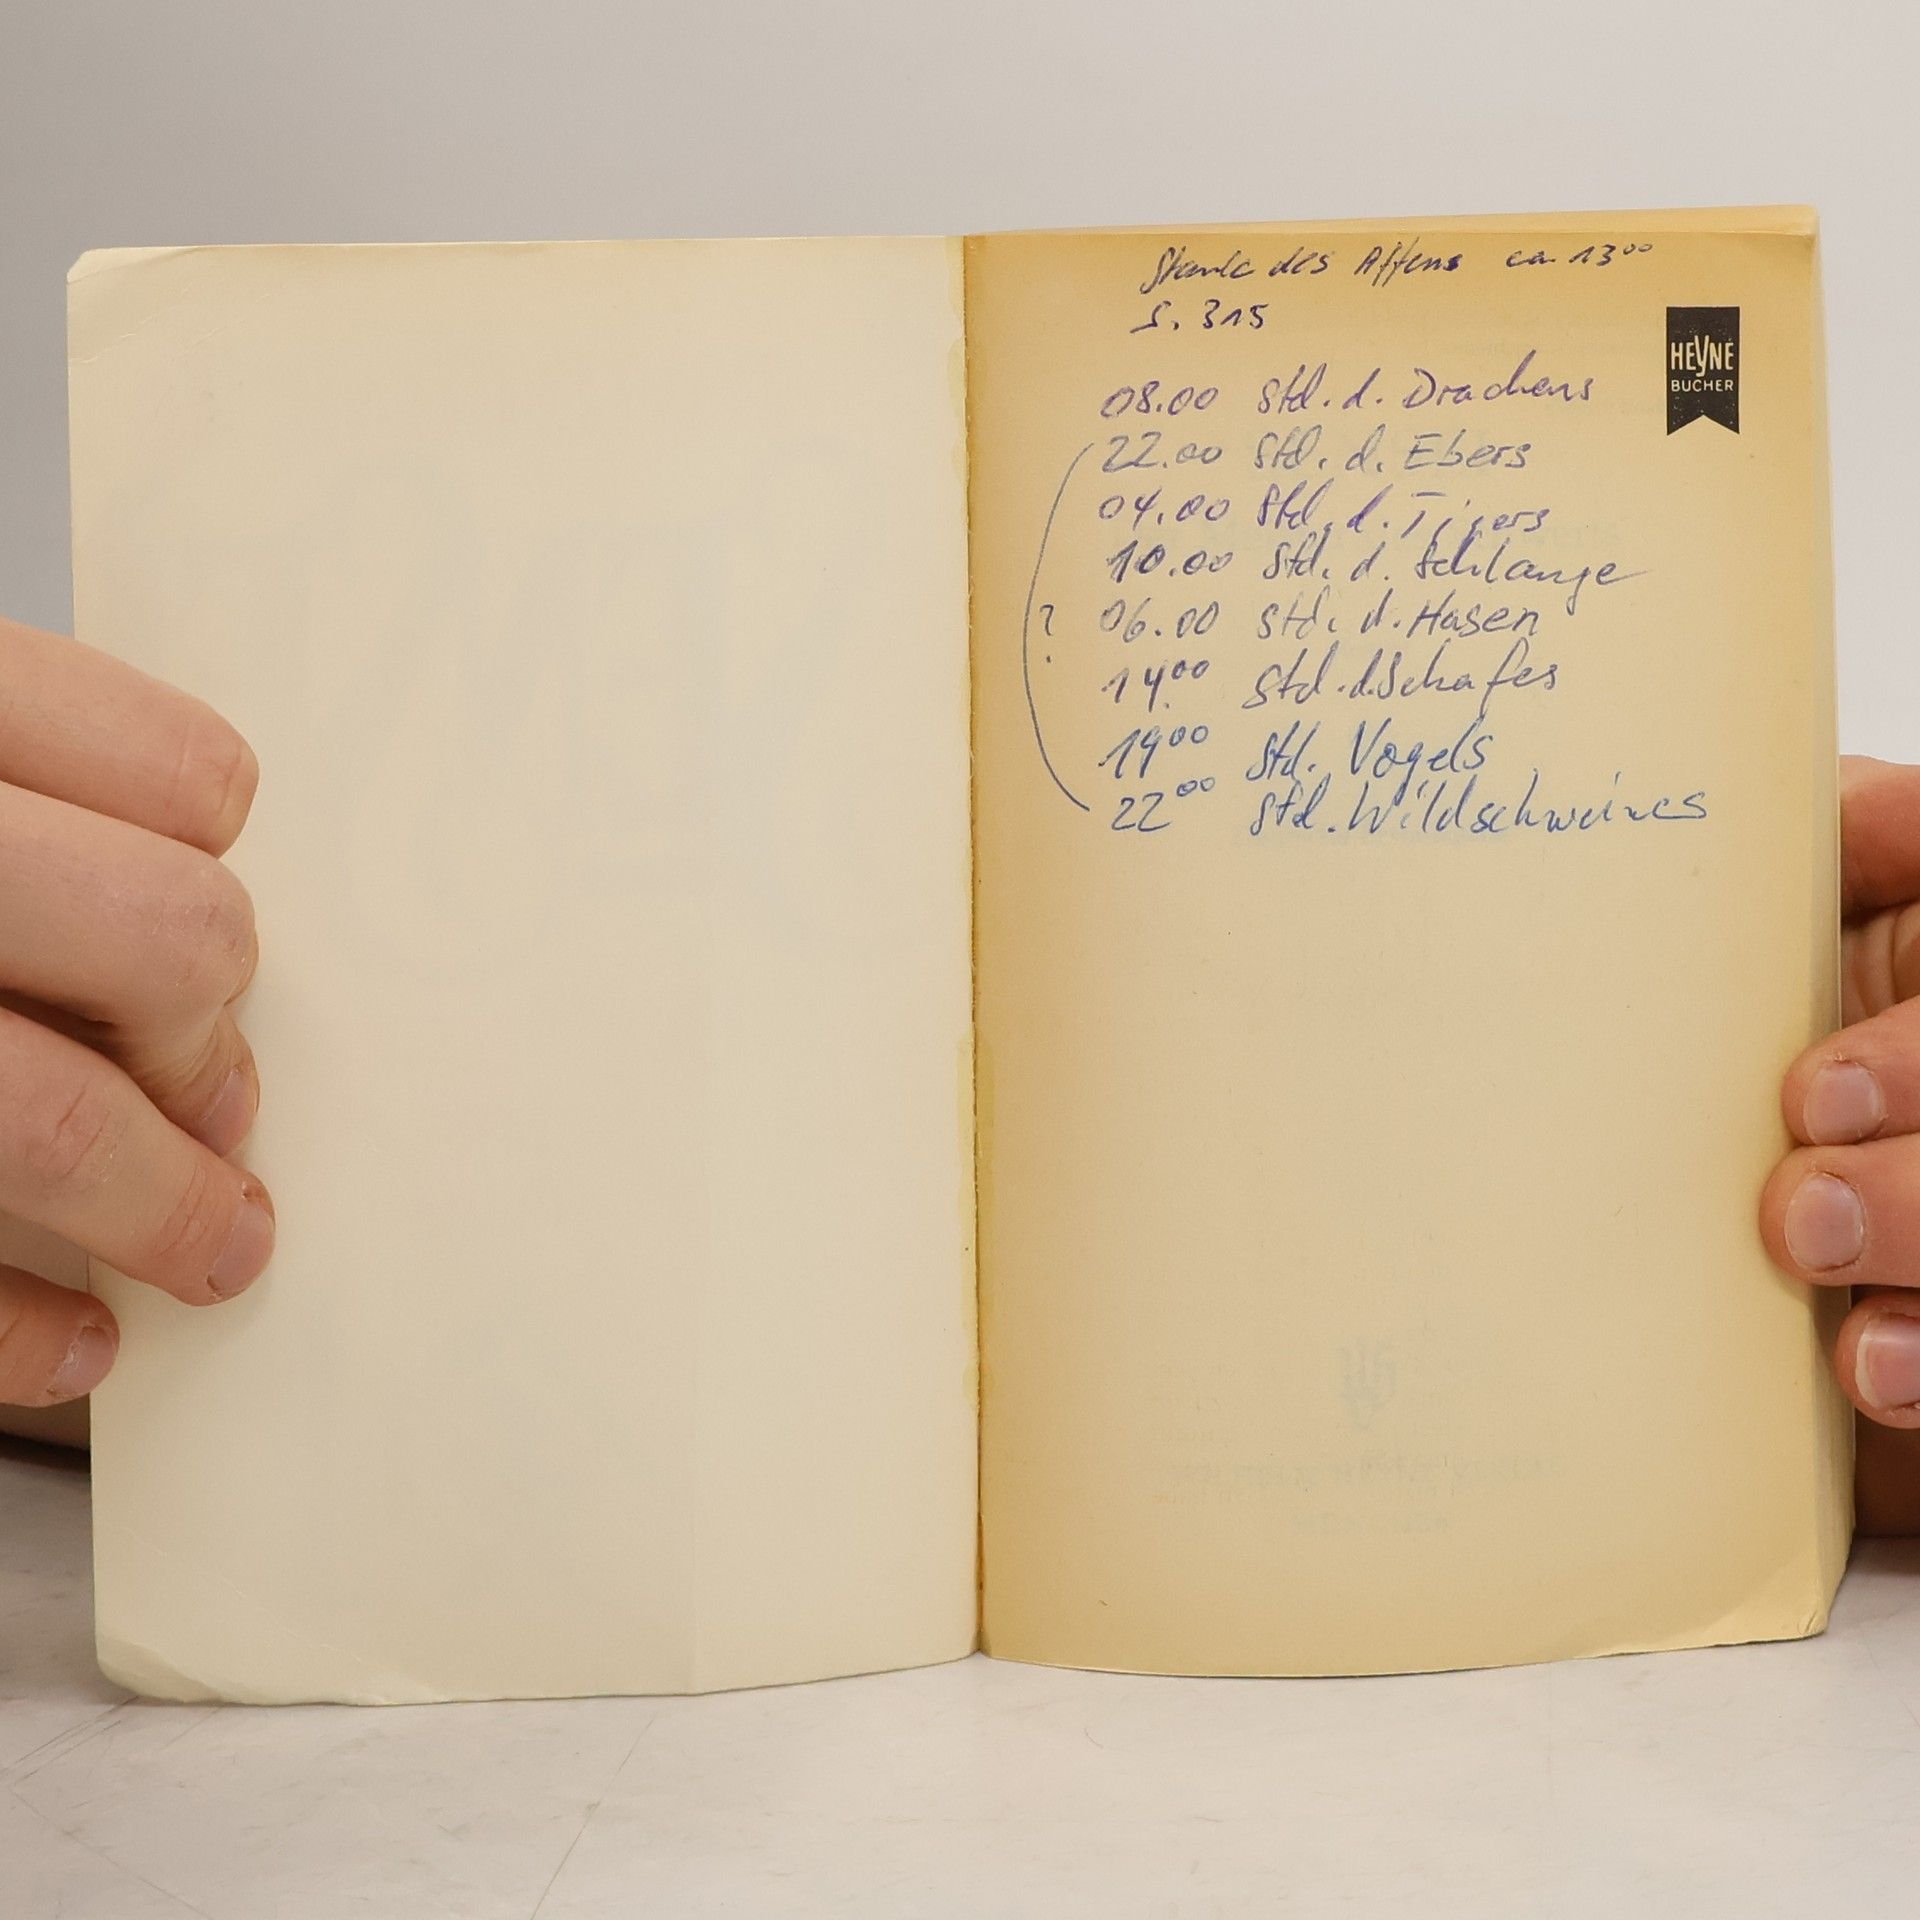 Stunde des Affens ca 13⁰⁰
S. 315
HEYNE
BÜCHER
08.00 Std. d. Drachens
22.00 Std. d. Ebers
04.00 Std. d. Tigers
10.00 Std. d. Schlange
? 06.00 Std. d. Hasen
14⁰⁰ Std. d. Schafes
19⁰⁰ Std. Vogels
22⁰⁰ Std. Wildschweines